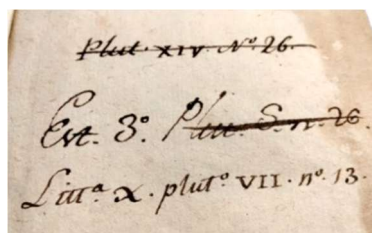 Plut. XIV. Nº. 26.
Est. 3º. Plut. S. n. 26
Littª X. plutº. VII. nº. 13.